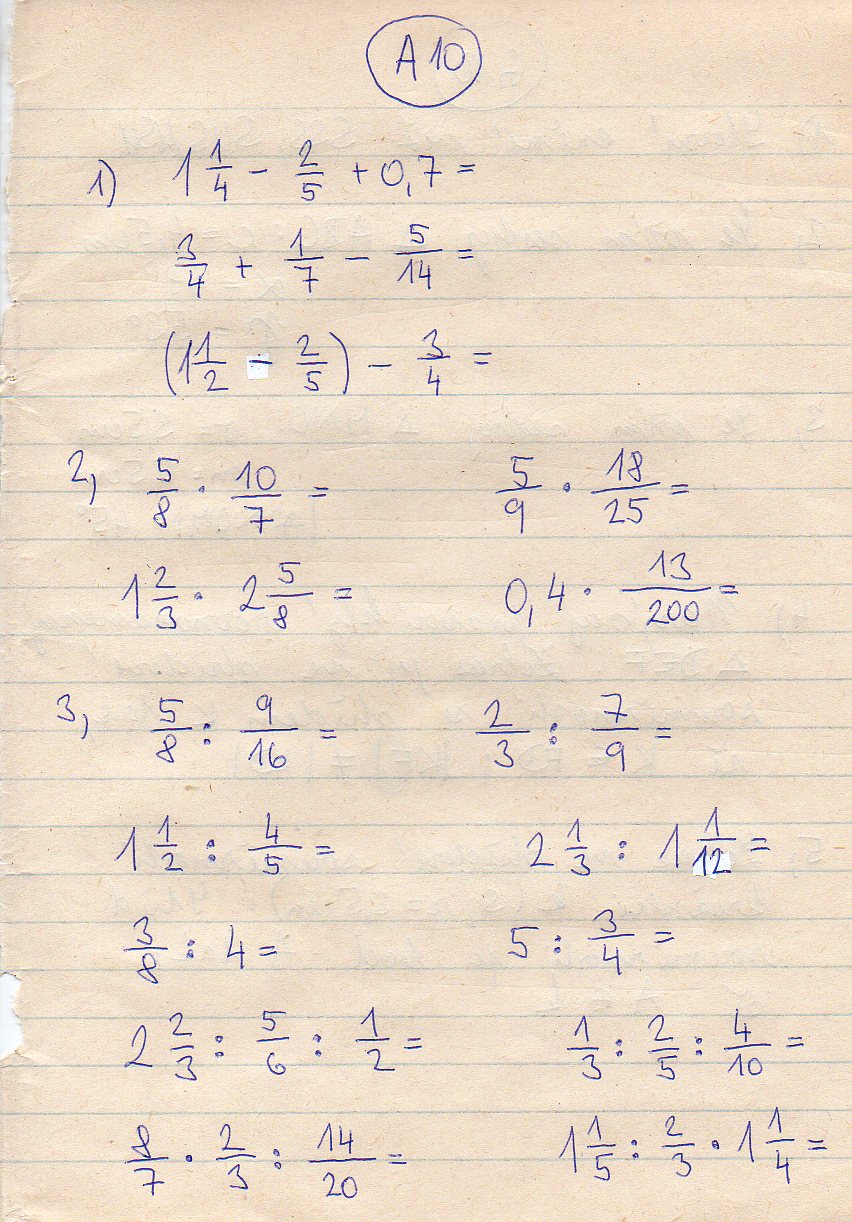 A 10
1) 1 1/4 - 2/5 + 0,7 =
3/4 + 1/7 - 5/14 =
(1 1/2 - 2/5) - 3/4 =
2, 5/8 · 10/7 = 5/9 · 18/25 =
1 2/3 · 2 5/8 = 0,4 · 13/200 =
3, 5/8 : 9/16 = 2/3 : 7/9 =
1 1/2 : 4/5 = 2 1/3 : 1 1/12 =
3/8 : 4 = 5 : 3/4 =
2 2/3 : 5/6 : 1/2 = 1/3 : 2/5 : 4/10 =
8/7 · 2/3 : 14/20 = 1 1/5 : 2/3 · 1 1/4 =